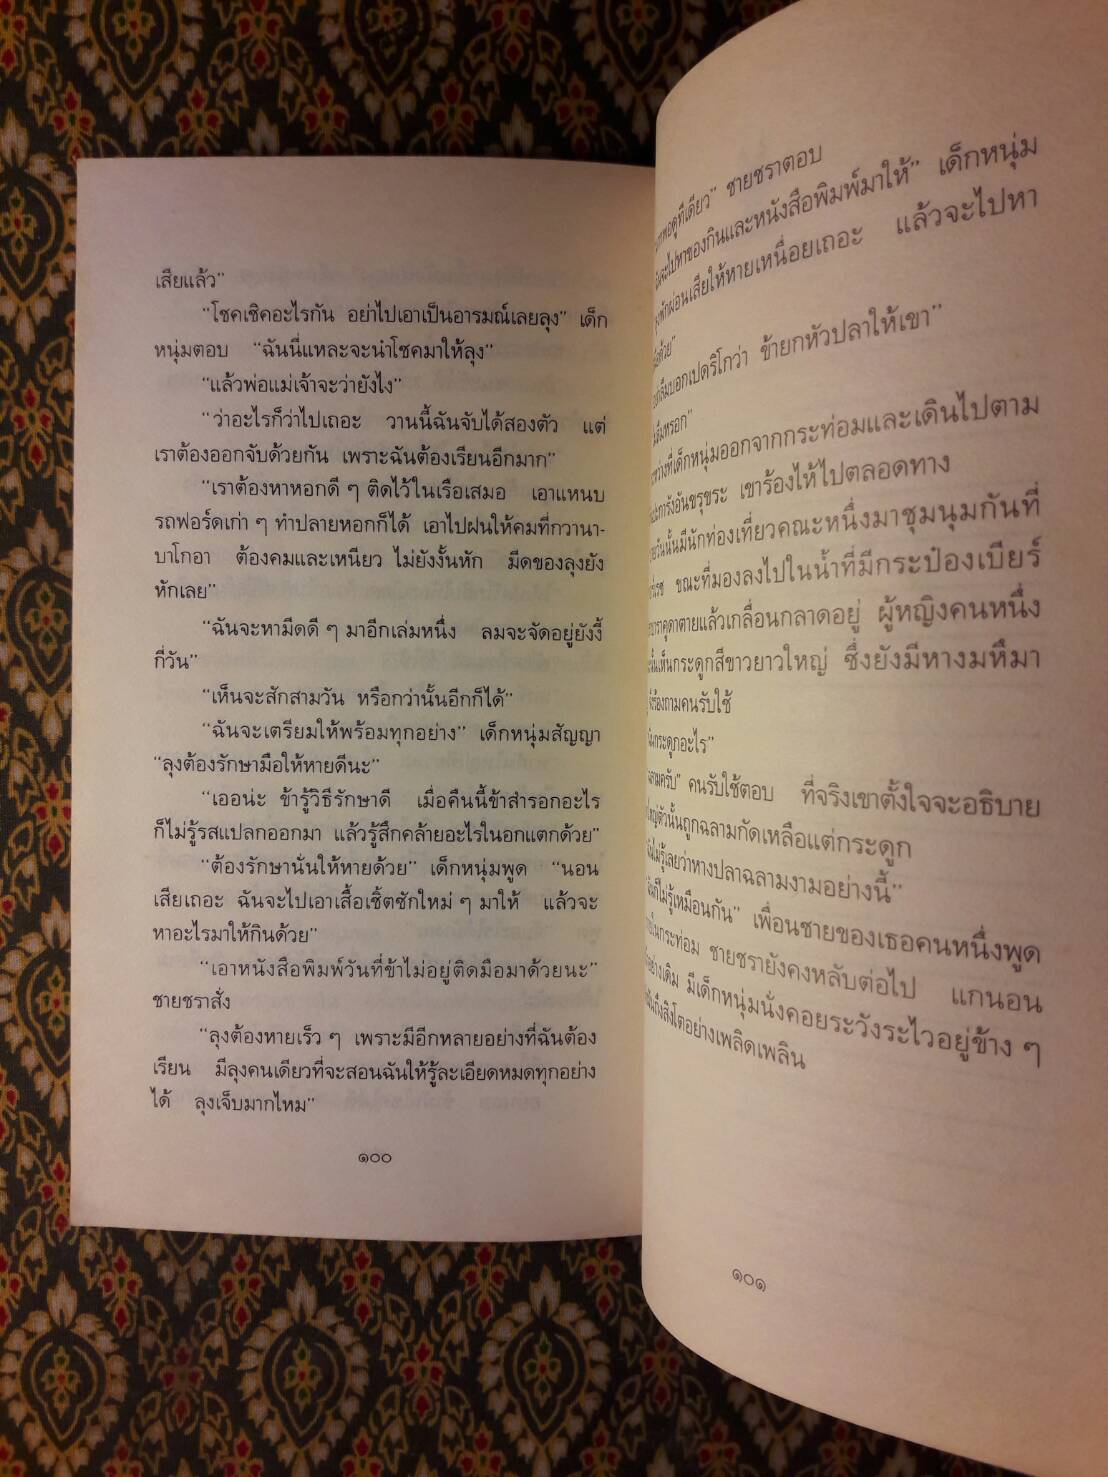 เสียแล้ว”
“โชคเชิคอะไรกัน อย่าไปเอาเป็นอารมณ์เลยลุง” เด็ก
หนุ่มตอบ “ฉันนี่แหละจะนำโชคมาให้ลุง”
“แล้วพ่อแม่เจ้าจะว่ายังไง”
“ว่าอะไรก็ว่าไปเถอะ วานนี้ฉันจับได้สองตัว แต่
เราต้องออกจับด้วยกัน เพราะฉันต้องเรียนอีกมาก”
“เราต้องหาหอกดี ๆ ติดไว้ในเรือเสมอ เอาแหนบ
รถฟอร์ดเก่า ๆ ทำปลายหอกก็ได้ เอาไปฝนให้คมที่กวานา-
บาโกอา ต้องคมและเหนียว ไม่ยังงั้นหัก มีดของลุงยัง
หักเลย”
“ฉันจะหามีดดี ๆ มาอีกเล่มหนึ่ง ลมจะจัดอยู่ยังงี้
กี่วัน”
“เห็นจะสักสามวัน หรือกว่านั้นอีกก็ได้”
“ฉันจะเตรียมให้พร้อมทุกอย่าง” เด็กหนุ่มสัญญา
“ลุงต้องรักษามือให้หายดีนะ”
“เออน่ะ ข้ารู้วิธีรักษาดี เมื่อคืนนี้ข้าสำรอกอะไร
ก็ไม่รู้รสแปลกออกมา แล้วรู้สึกคล้ายอะไรในอกแตกด้วย”
“ต้องรักษานั่นให้หายด้วย” เด็กหนุ่มพูด “นอน
เสียเถอะ ฉันจะไปเอาเสื้อเชิ้ตซักใหม่ ๆ มาให้ แล้วจะ
หาอะไรมาให้กินด้วย”
“เอาหนังสือพิมพ์วันที่ข้าไม่อยู่ติดมือมาด้วยนะ”
ชายชราสั่ง
“ลุงต้องหายเร็ว ๆ เพราะมีอีกหลายอย่างที่ฉันต้อง
เรียน มีลุงคนเดียวที่จะสอนฉันให้รู้ละเอียดหมดทุกอย่าง
ได้ ลุงเจ็บมากไหม”
๑๐๐
ทีเดียว” ชายชราตอบ
จะไปหาของกินและหนังสือพิมพ์มาให้” เด็กหนุ่ม
พักผ่อนเสียให้หายเหนื่อยเถอะ แล้วจะไปหา
ด้วย”
ลืมบอกเปดริโกว่า ข้ายกหัวปลาให้เขา”
ลืมหรอก”
ที่เด็กหนุ่มออกจากกระท่อมและเดินไปตาม
ปะการังอันขรุขระ เขาร้องไห้ไปตลอดทาง
วันนั้นมีนักท่องเที่ยวคณะหนึ่งมาชุมนุมกันที่
ขณะที่มองลงไปในน้ำที่มีกระป๋องเบียร์
ตายแล้วเกลื่อนกลาดอยู่ ผู้หญิงคนหนึ่ง
เห็นกระดูกสีขาวยาวใหญ่ ซึ่งยังมีหางมหึมา
ร้องถามคนรับใช้
กระดูกอะไร”
คนรับใช้ตอบ ที่จริงเขาตั้งใจจะอธิบาย
ตัวนั้นถูกฉลามกัดเหลือแต่กระดูก
ไม่รู้เลยว่าหางปลาฉลามงามอย่างนี้”
ก็ไม่รู้เหมือนกัน” เพื่อนชายของเธอคนหนึ่งพูด
ในกระท่อม ชายชรายังคงหลับต่อไป แกนอน
อย่างเดิม มีเด็กหนุ่มนั่งคอยระวังระไวอยู่ข้าง ๆ
ฝันถึงสิงโตอย่างเพลิดเพลิน
๑๐๑